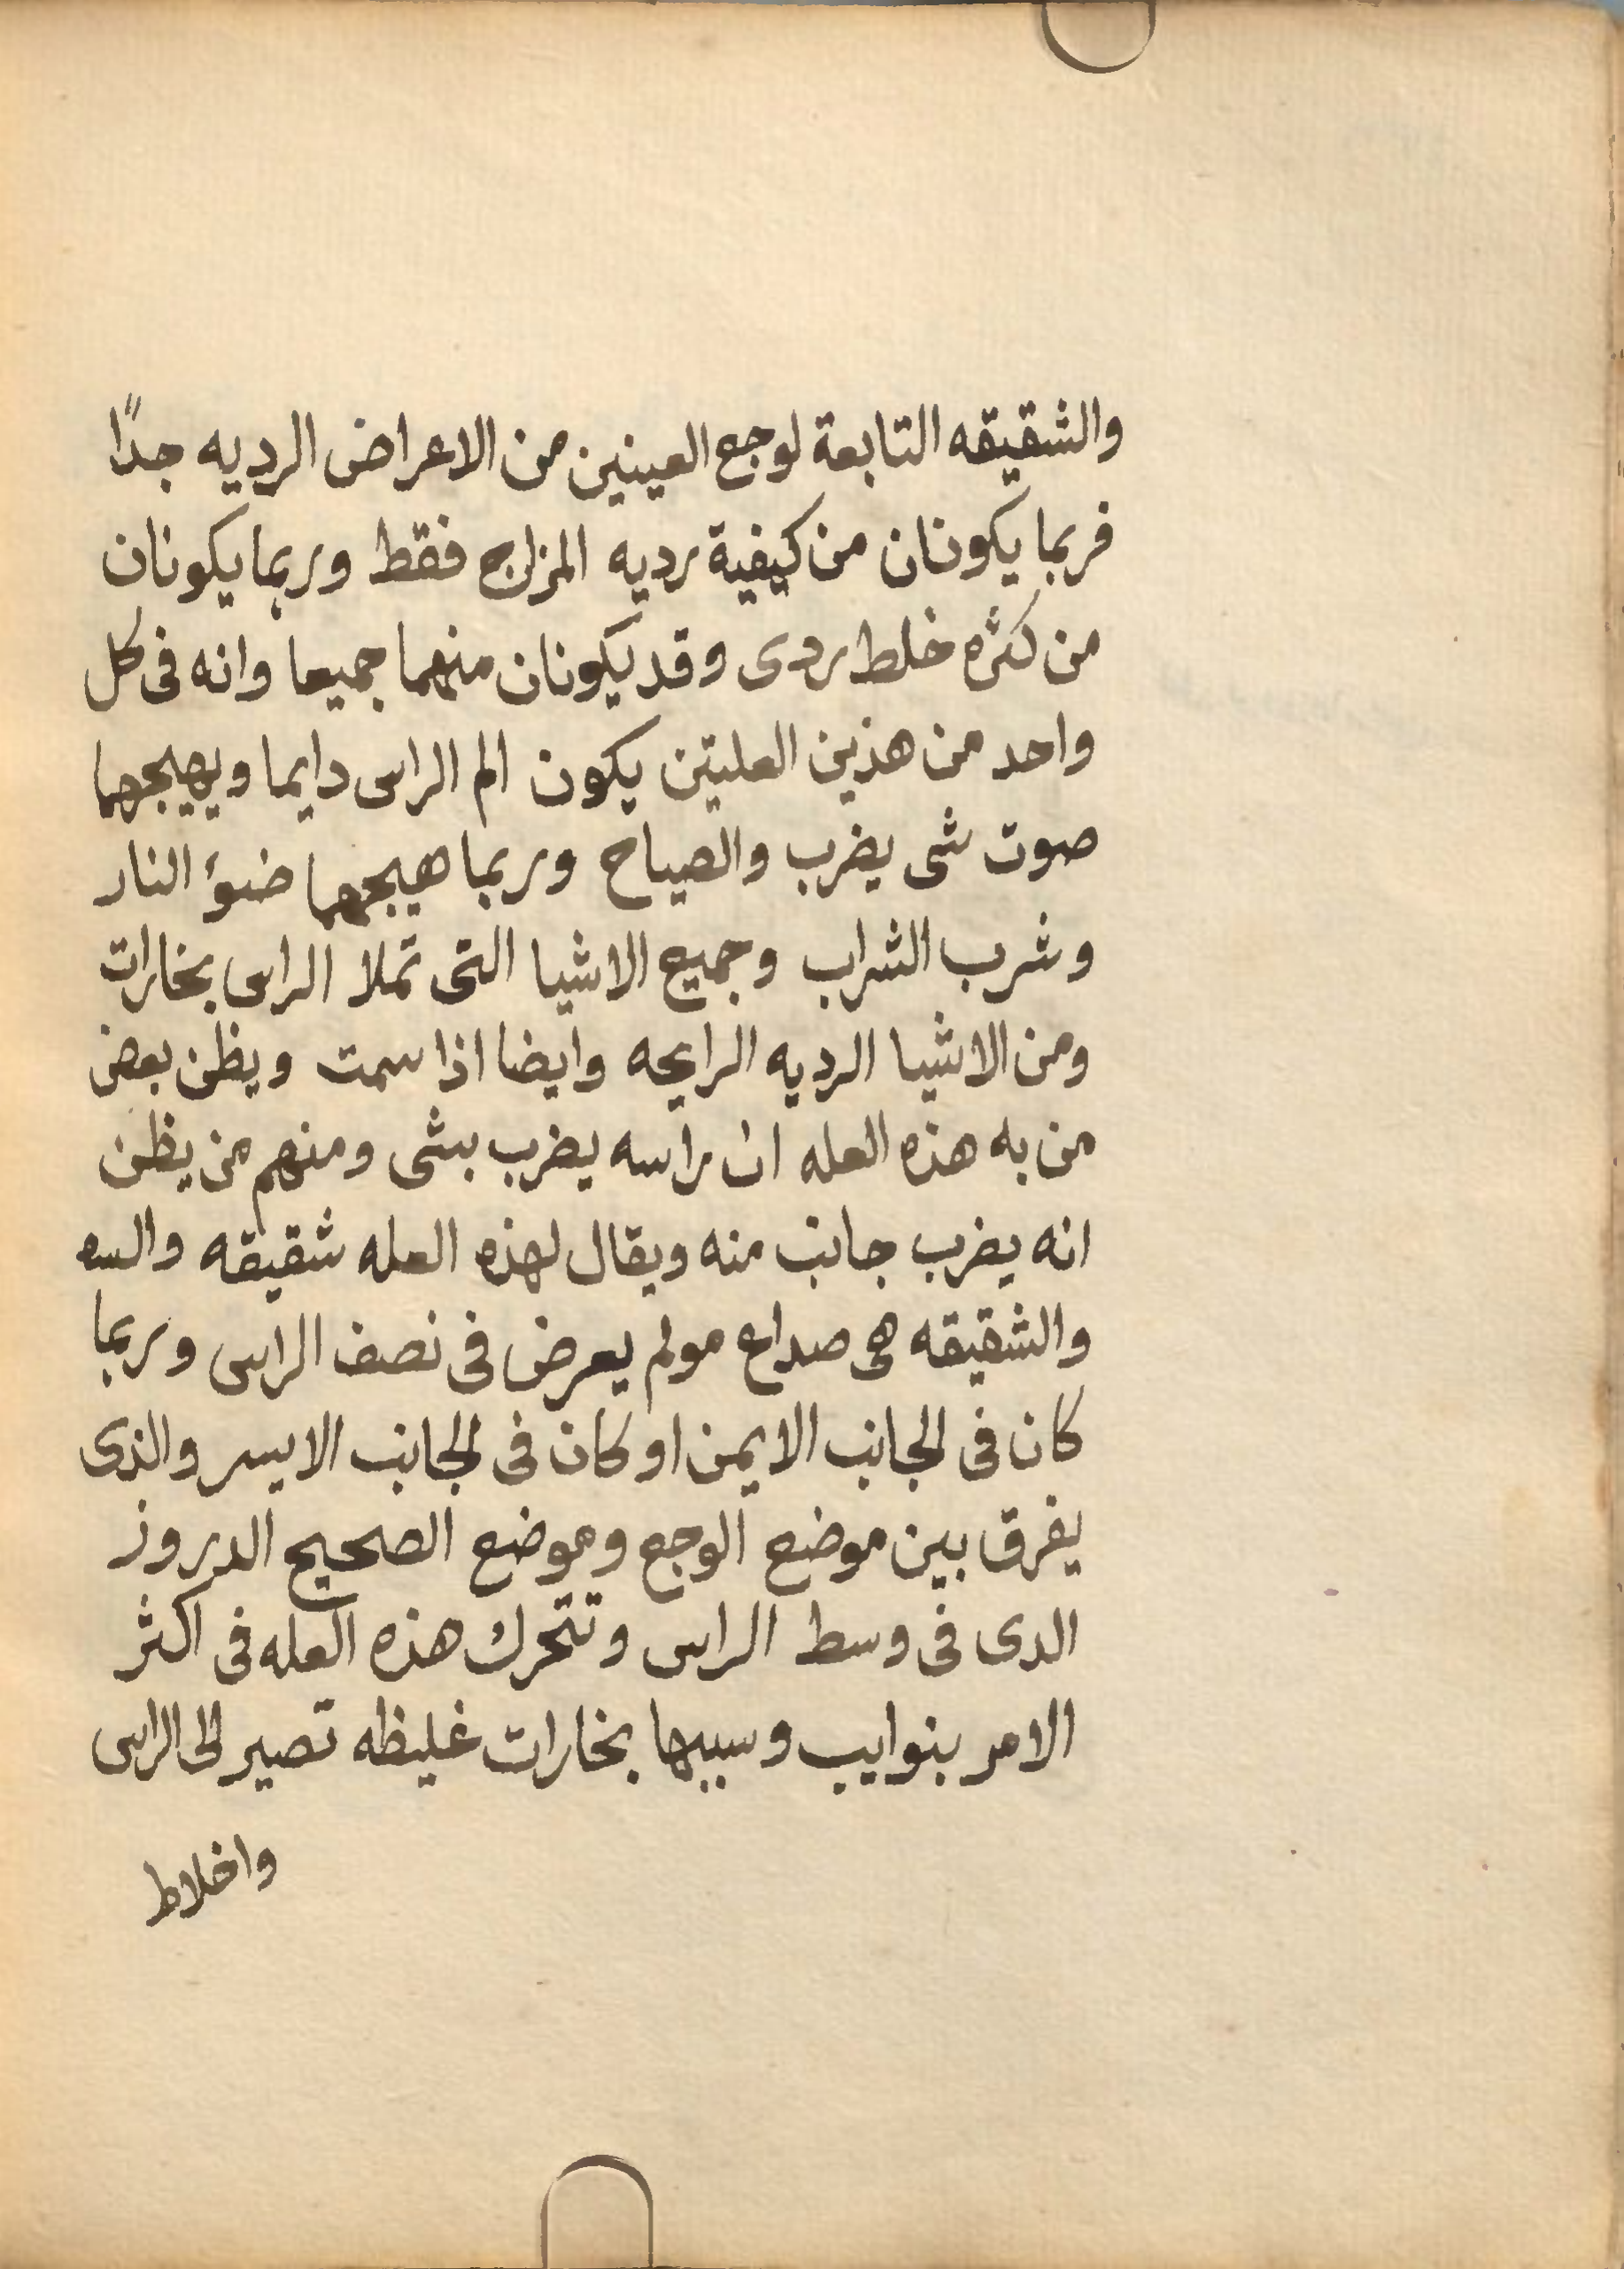 والشقيقه التابعة لوجع العينين من الاعراض الرديه جدًا
فربما يكونان من كيفية رديه المزاج فقط وربما يكونان
من كثره خلط ردى وقد يكونان منهما جميعا وانه فى كل
واحد من هذين العليتن يكون الم الراس دايما ويهيجهما
صوت شى يضرب والصياح وربما هيجهما ضوؤ النار
وشرب الشراب وجميع الاشيا التى تملا الراس بخارات
ومن الاشيا الرديه الرايحه وايضا اذا سمت ويظن بعض
من به هذه العله ان راسه يضرب بشى ومنهم من يظن
انه يضرب جانب منه ويقال لهذه العله شقيقه
والشقيقه هى صداع مولم يعرض فى نصف الراس وربما
كان فى الجانب الايمن او كان فى الجانب الايسر والذى
يفرق بين موضع الوجع وموضع الصحيح الدروز
الدى فى وسط الراس وتتحرك هذه العله فى اكثر
الامر بنوايب وسببها بخارات غليظه تصير الى الراس
واخلاط